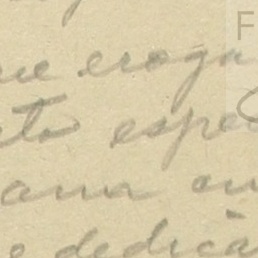 F
ue eroga
to espe
ana en
e dedicà